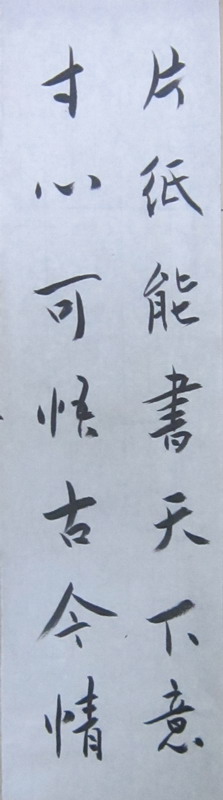 片纸能書天下意
寸心可悟古今情